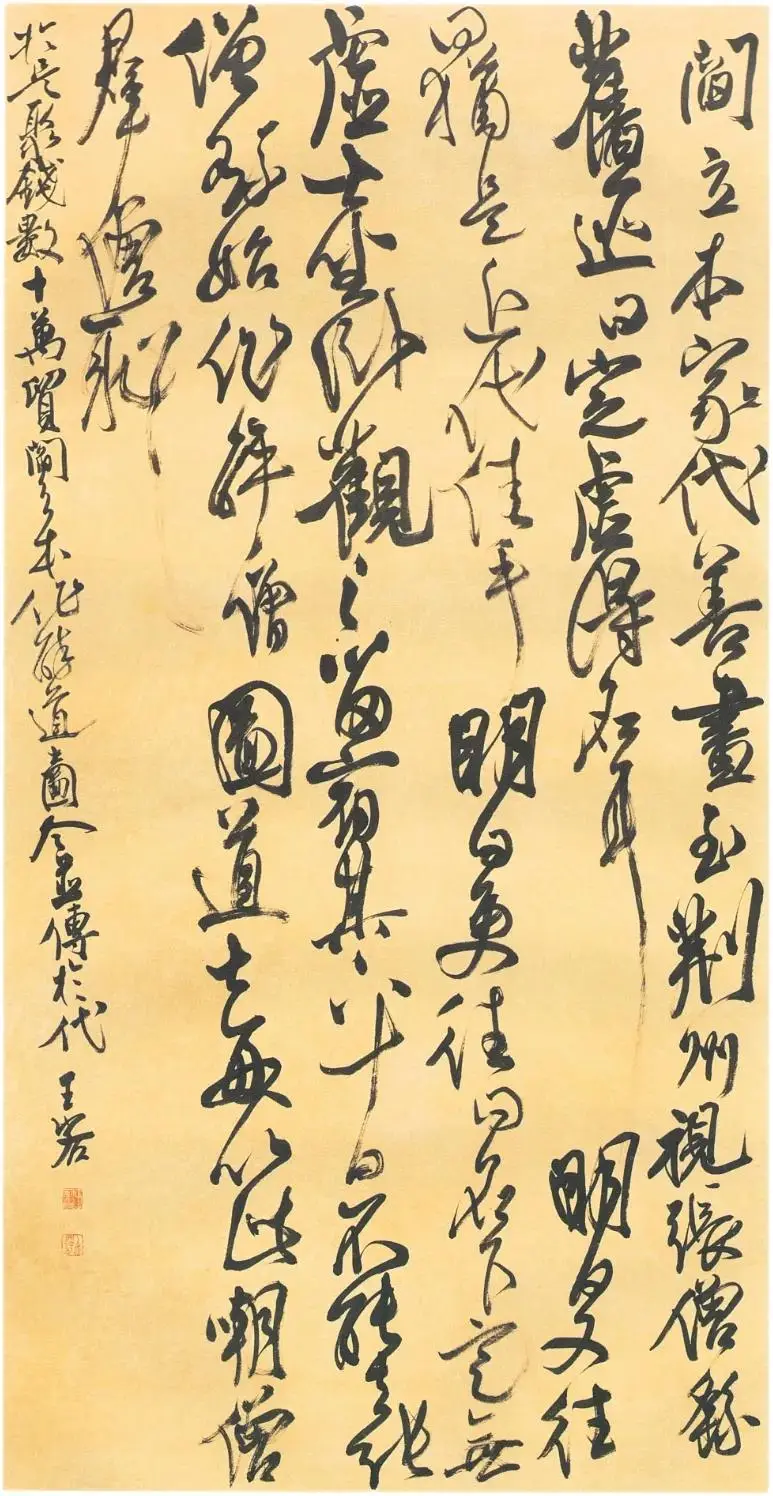 閻立本家代善畫至荊州視張僧繇
舊迹曰定虛得名耳明日又往
曰猶是近代佳手明日更往曰名下定無
虛士坐臥觀之留宿其下十日不能去張
僧繇始作醉僧圖道士每以此嘲僧
群僧恥
於是聚錢數十萬貿閻立本作醉道圖今並傳於代 王客